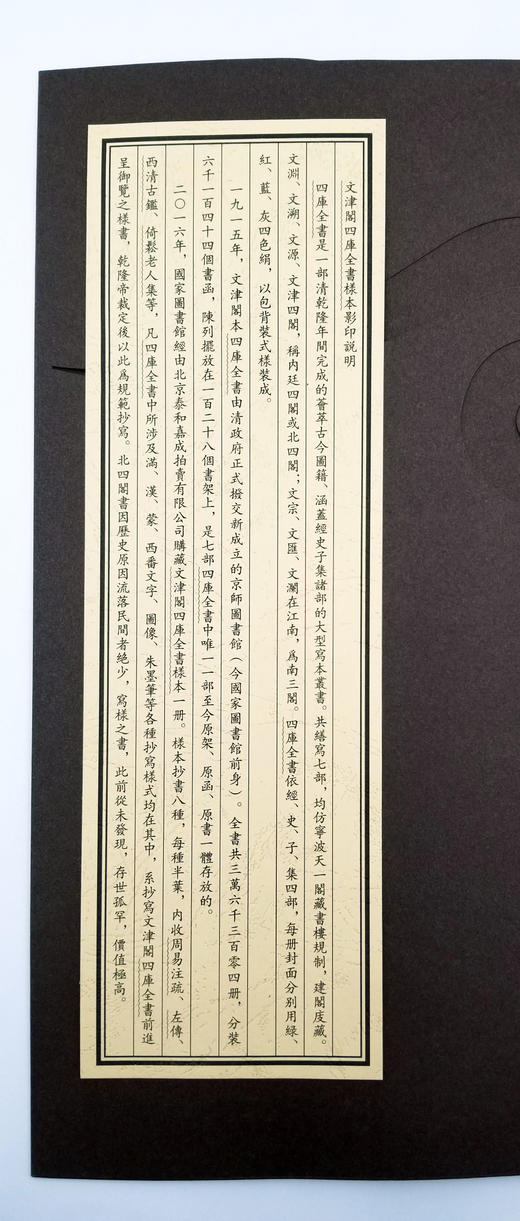 文津閣四庫全書樣本影印説明
四庫全書是一部清乾隆年間完成的薈萃古今圖籍、涵蓋經史子集諸部的大型寫本叢書。共繕寫七部，均仿寧波天一閣藏書樓規制，建閣庋藏。
文淵、文溯、文源、文津四閣，稱内廷四閣或北四閣；文宗、文匯、文瀾在江南，爲南三閣。四庫全書依經、史、子、集四部，每册封面分别用緑、
紅、藍、灰四色絹，以包背裝式樣裝成。
一九一五年，文津閣本四庫全書由清政府正式撥交新成立的京師圖書館（今國家圖書館前身）。全書共三萬六千三百零四册，分裝
六千一百四十四個書函，陳列擺放在一百二十八個書架上，是七部四庫全書中唯一一部至今原架、原函、原書一體存放的。
二〇一六年，國家圖書館經由北京泰和嘉成拍賣有限公司購藏文津閣四庫全書樣本一册。樣本抄書八種，每種半葉，内收周易注疏、左傳、
西清古鑑、倚鬆老人集等，凡四庫全書中所涉及滿、漢、蒙、西番文字、圖像、朱墨筆等各種抄寫樣式均在其中，系抄寫文津閣四庫全書前進
呈御覽之樣書，乾隆帝裁定後以此爲規範抄寫。北四閣書因歷史原因流落民間者絶少，寫樣之書，此前從未發現，存世孤罕，價值極高。